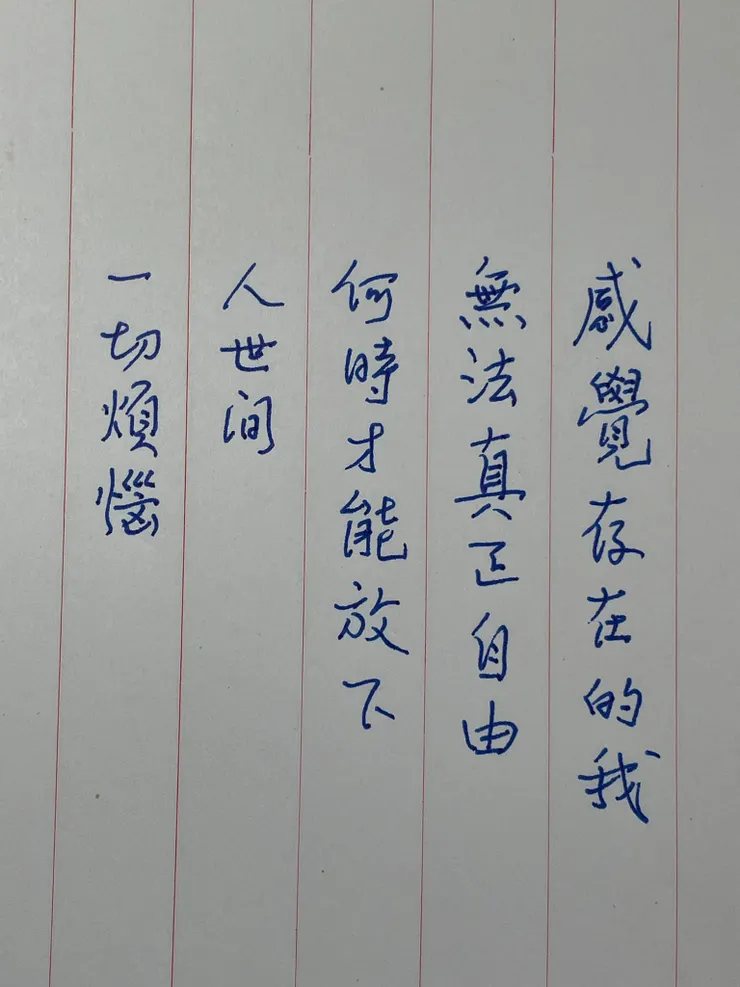 感覺存在的我
無法真正自由
何時才能放下
人世间
一切煩惱